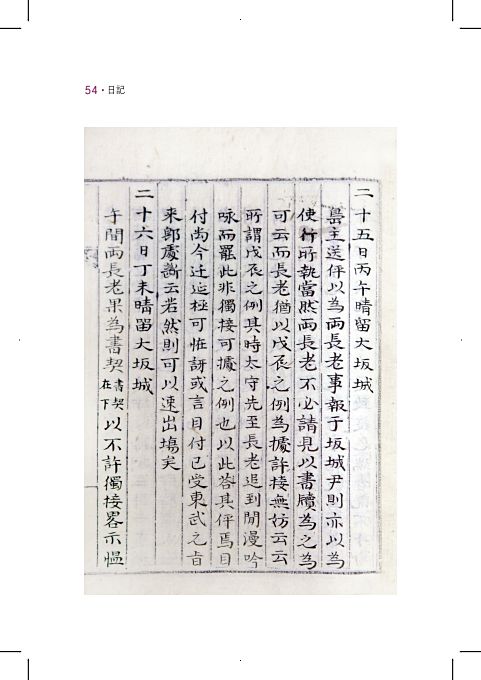 54・日記
二十五日丙午晴留大坂城
島主送伻以為兩長老事報于坂城尹則亦以為
使行所執當然兩長老不必請見以書牘為之為
可云而長老猶以戊辰之例為據許接無妨云云
所謂戊辰之例其時太守先至長老追到閒漫吟
咏而罷此非獨接可據之例也以此答其伻焉目
付尚今迁延極可恠訝或言目付已受東武之旨
來鄭慶渤云若然則可以速出塲矣
二十六日丁未晴留大坂城
午間兩長老果為書契書契在下以不許獨接畧示慍